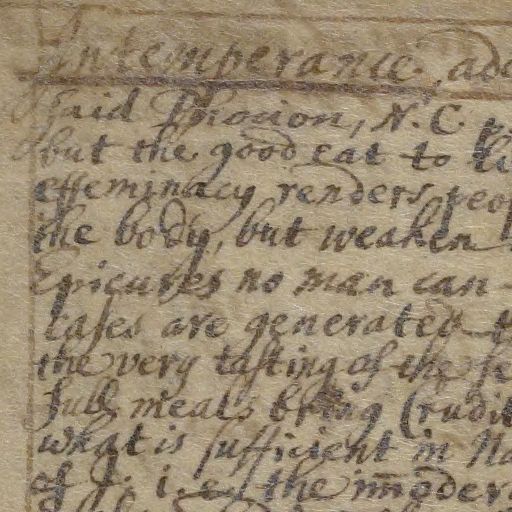 Intemperance, add
said Phocion, N. C.
but the good eat to li
effeminacy renders peop
the body, but weaken
Epicures no man can
eases are generated th
the very tasting of the se
full meals bring (rudit
what is sufficient in Na
of J. i. e. the im̄oder